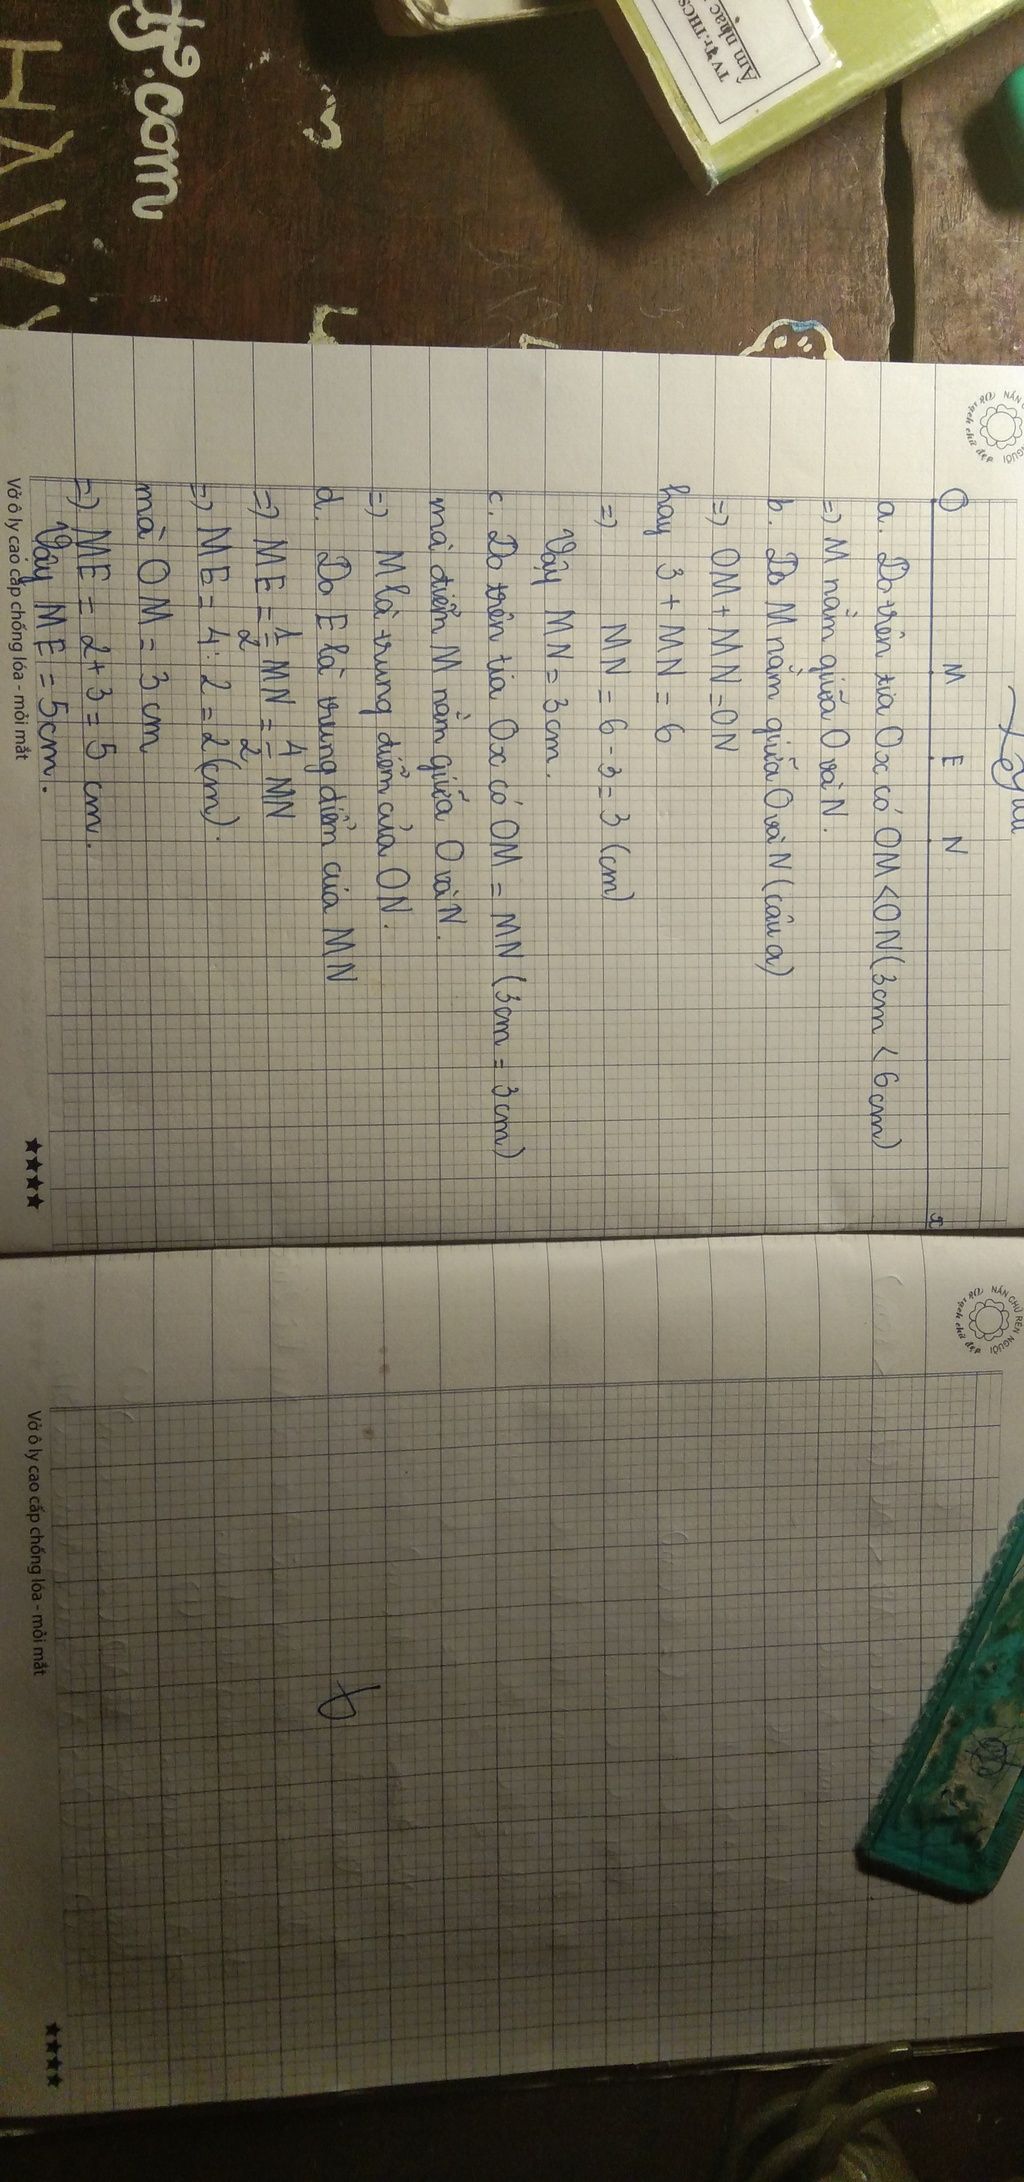 dtp.com
HAVY
TV Tr.THCS
Âm nhạc
NẮN CHỮ RÈN NGƯỜI
O M E N x
a. Do trên tia Ox có OM < ON (3cm < 6cm)
=) M nằm giữa O và N.
b. Do M nằm giữa O và N (câu a)
=) OM + MN = ON
hay 3 + MN = 6
=) MN = 6 - 3 = 3 (cm)
Vậy MN = 3cm.
c. Do trên tia Ox có OM = MN (3cm = 3cm)
mà điểm M nằm giữa O và N.
=) M là trung điểm của ON.
d. Do E là trung điểm của MN
=) ME = 1/2 MN = 4/2 MN
=) ME = 4 : 2 = 2 (cm).
mà OM = 3cm
=) ME = 2 + 3 = 5 cm.
Vậy ME = 5cm.
Vở ô ly cao cấp chống lóa - mỏi mắt
NẮN CHỮ RÈN NGƯỜI
Vở ô ly cao cấp chống lóa - mỏi mắt